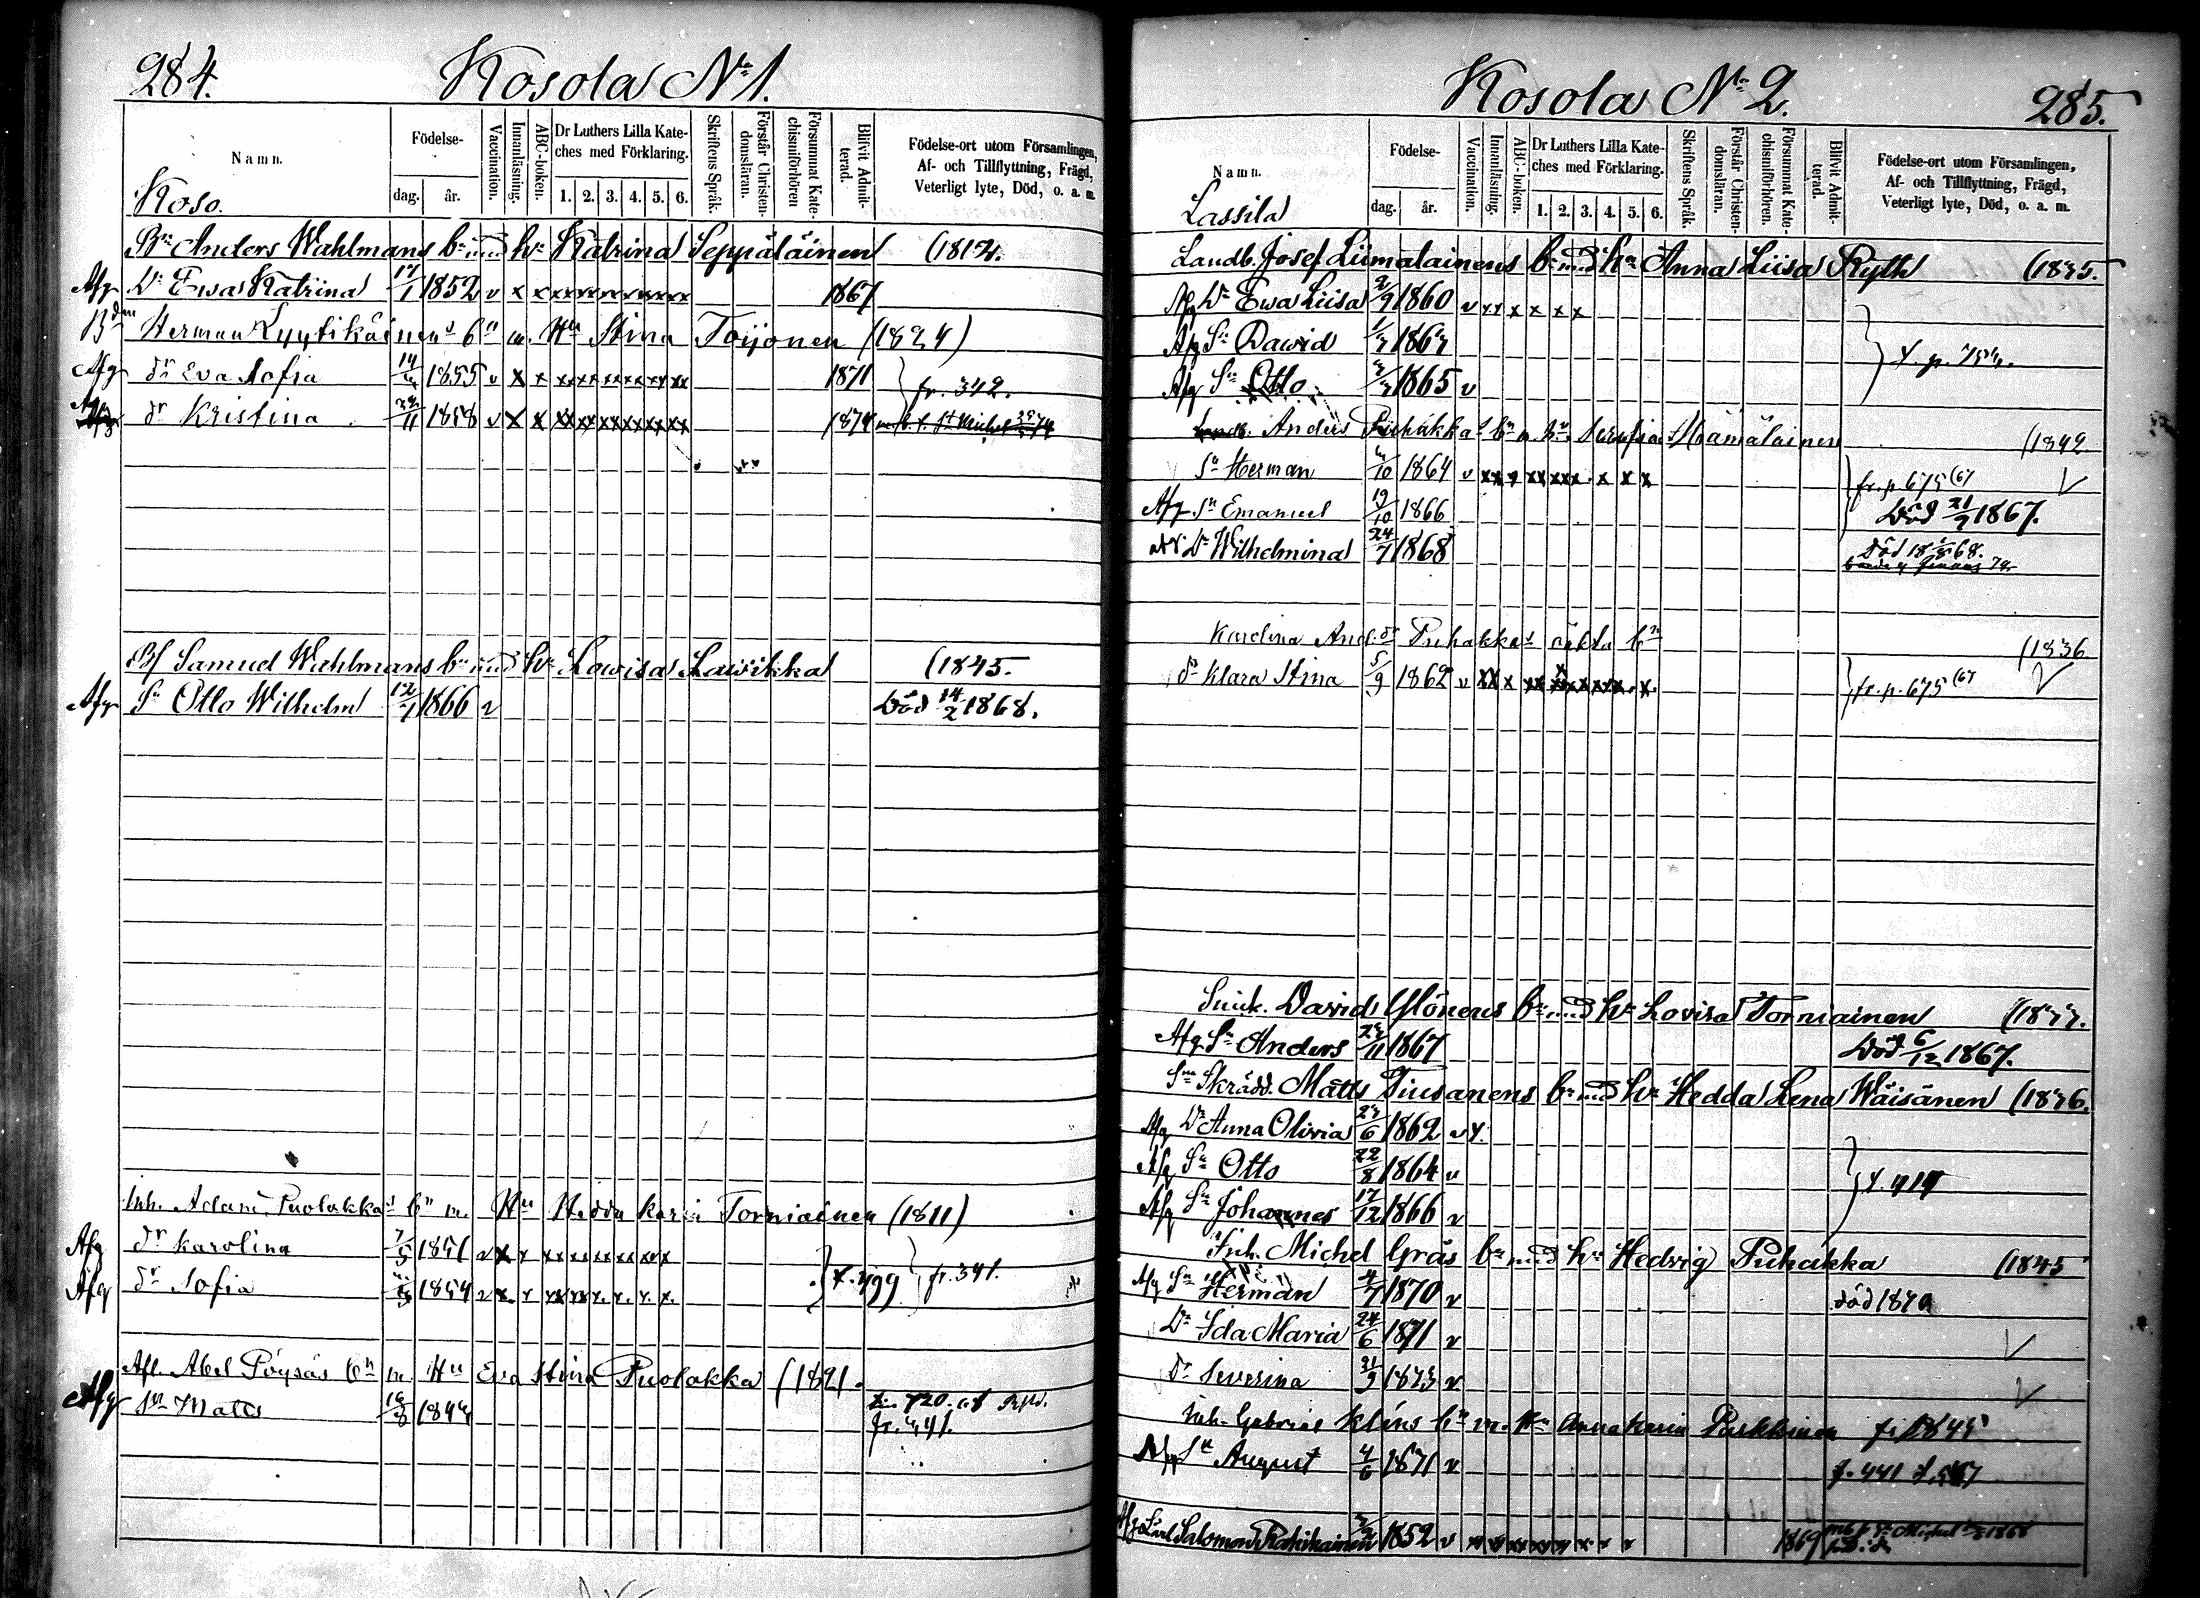 284.
Kosola No 1.
Namn.
Födelse-
dag. år.
Vaccination.
Innanläsning.
ABC-boken.
Dr Luthers Lilla Kate-
ches med Förklaring.
1. 2. 3. 4. 5. 6.
Skriftens Språk.
Förstår Christen-
domsläran.
Försummat Kate-
chismiförhören
Blifvit Admit-
terad.
Födelse-ort utom Församlingen,
Af- och Tillflyttning, Frägd,
Veterligt lyte, Död, o. a. m.
Koso.
Bn Anders Wahlmans bn med hu Katrina Seppäläinen (1812.
Afg Dr Ewa Katrina 17/1 1852 v x x 1867
Herman Lyytikäinens bn m. Hu Stina Toijonen (1824)
Afg dr Eva Sofia 1855 v x x 1871 fr. 342.
dr Kristina 1858 v x x 1874
Bf Samuel Wahlmans bn med hu Lowisa Lawikka (1845.
Afg Sn Otto Wilhelm 12/7 1866 v Död 14/2 1868.
Inh. Adam Puolakkas bn m. Hu Hedda Karin Torniainen (1811)
Afg dr Karolina 7/5 1851 v x
Afg dr Sofia 1854 v x f. 499 fr. 341.
Afl. Abel Pöysäs bn m. Hu Eva Stina Puolakka (1821.
Afg Sn Matts 16/8 fr. 341.
Kosola No 2.
285.
Namn.
Födelse-
dag. år.
Vaccination.
Innanläsning.
ABC-boken.
Dr Luthers Lilla Kate-
ches med Förklaring.
1. 2. 3. 4. 5. 6.
Skriftens Språk.
Förstår Christen-
domsläran.
Försummat Kate-
chismiförhören.
Blifvit Admit-
terad.
Födelse-ort utom Församlingen,
Af- och Tillflyttning, Frägd,
Veterligt lyte, Död, o. a. m.
Lassila
Landb. Josef Liimalainens bn med hu Anna Liisa Ryth (1835.
Afg Dr Ewa Liisa 2/9 1860 v
Afg Sn Dawid
Afg Sn Otto 1865 v
Anders Puhakkas bn m. hu Serafia Hämäläinen (1842.
Sn Herman 1864 v fr. p 675 (67
Afg Sn Emanuel 19/10 1866 Död 21/7 1867.
Dr Wilhelmina 24/7 1868
Karolina And. dr Puhakkas oäkta bn (1836
dr Klara Stina 5/9 1862 v fr. p. 675 (67
Snick. David Ylönens bn med hu Lovisa Torniainen
Afg Sn Anders 1867 Död 6/12 1867.
Skrädd. Matts Tiusanens bn med hu Hedda Lena Wäisänen (1836.
Afg Dr Anna Olivia 1862
Afg Sn Otto 22/8 1864 v
Afg Sn Johannes 17/12 1866 v
Inh. Michel Gräs bn med hu Hedvig Puhakka (1845
Afg Sn Herman 4/7 1870 v död 1870
Dr Ida Maria 24/6 1871 v
Dr Severina 21/9 1873 v
Inh. Gabriel Kläns bn m. Hu Anna Karin Parkkinen
Afg Sn August 4/6 1871 v f. 441
Salomon 1852 v 1869